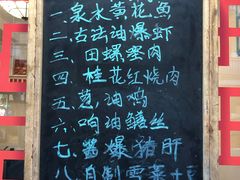 一、泉水黄花魚
二、古法油爆虾
三、田螺塞肉
四、桂花红烧肉
五、葱油鸡
六、响油鳝丝
七、酱爆猪肝
八、自制雪菜+豆